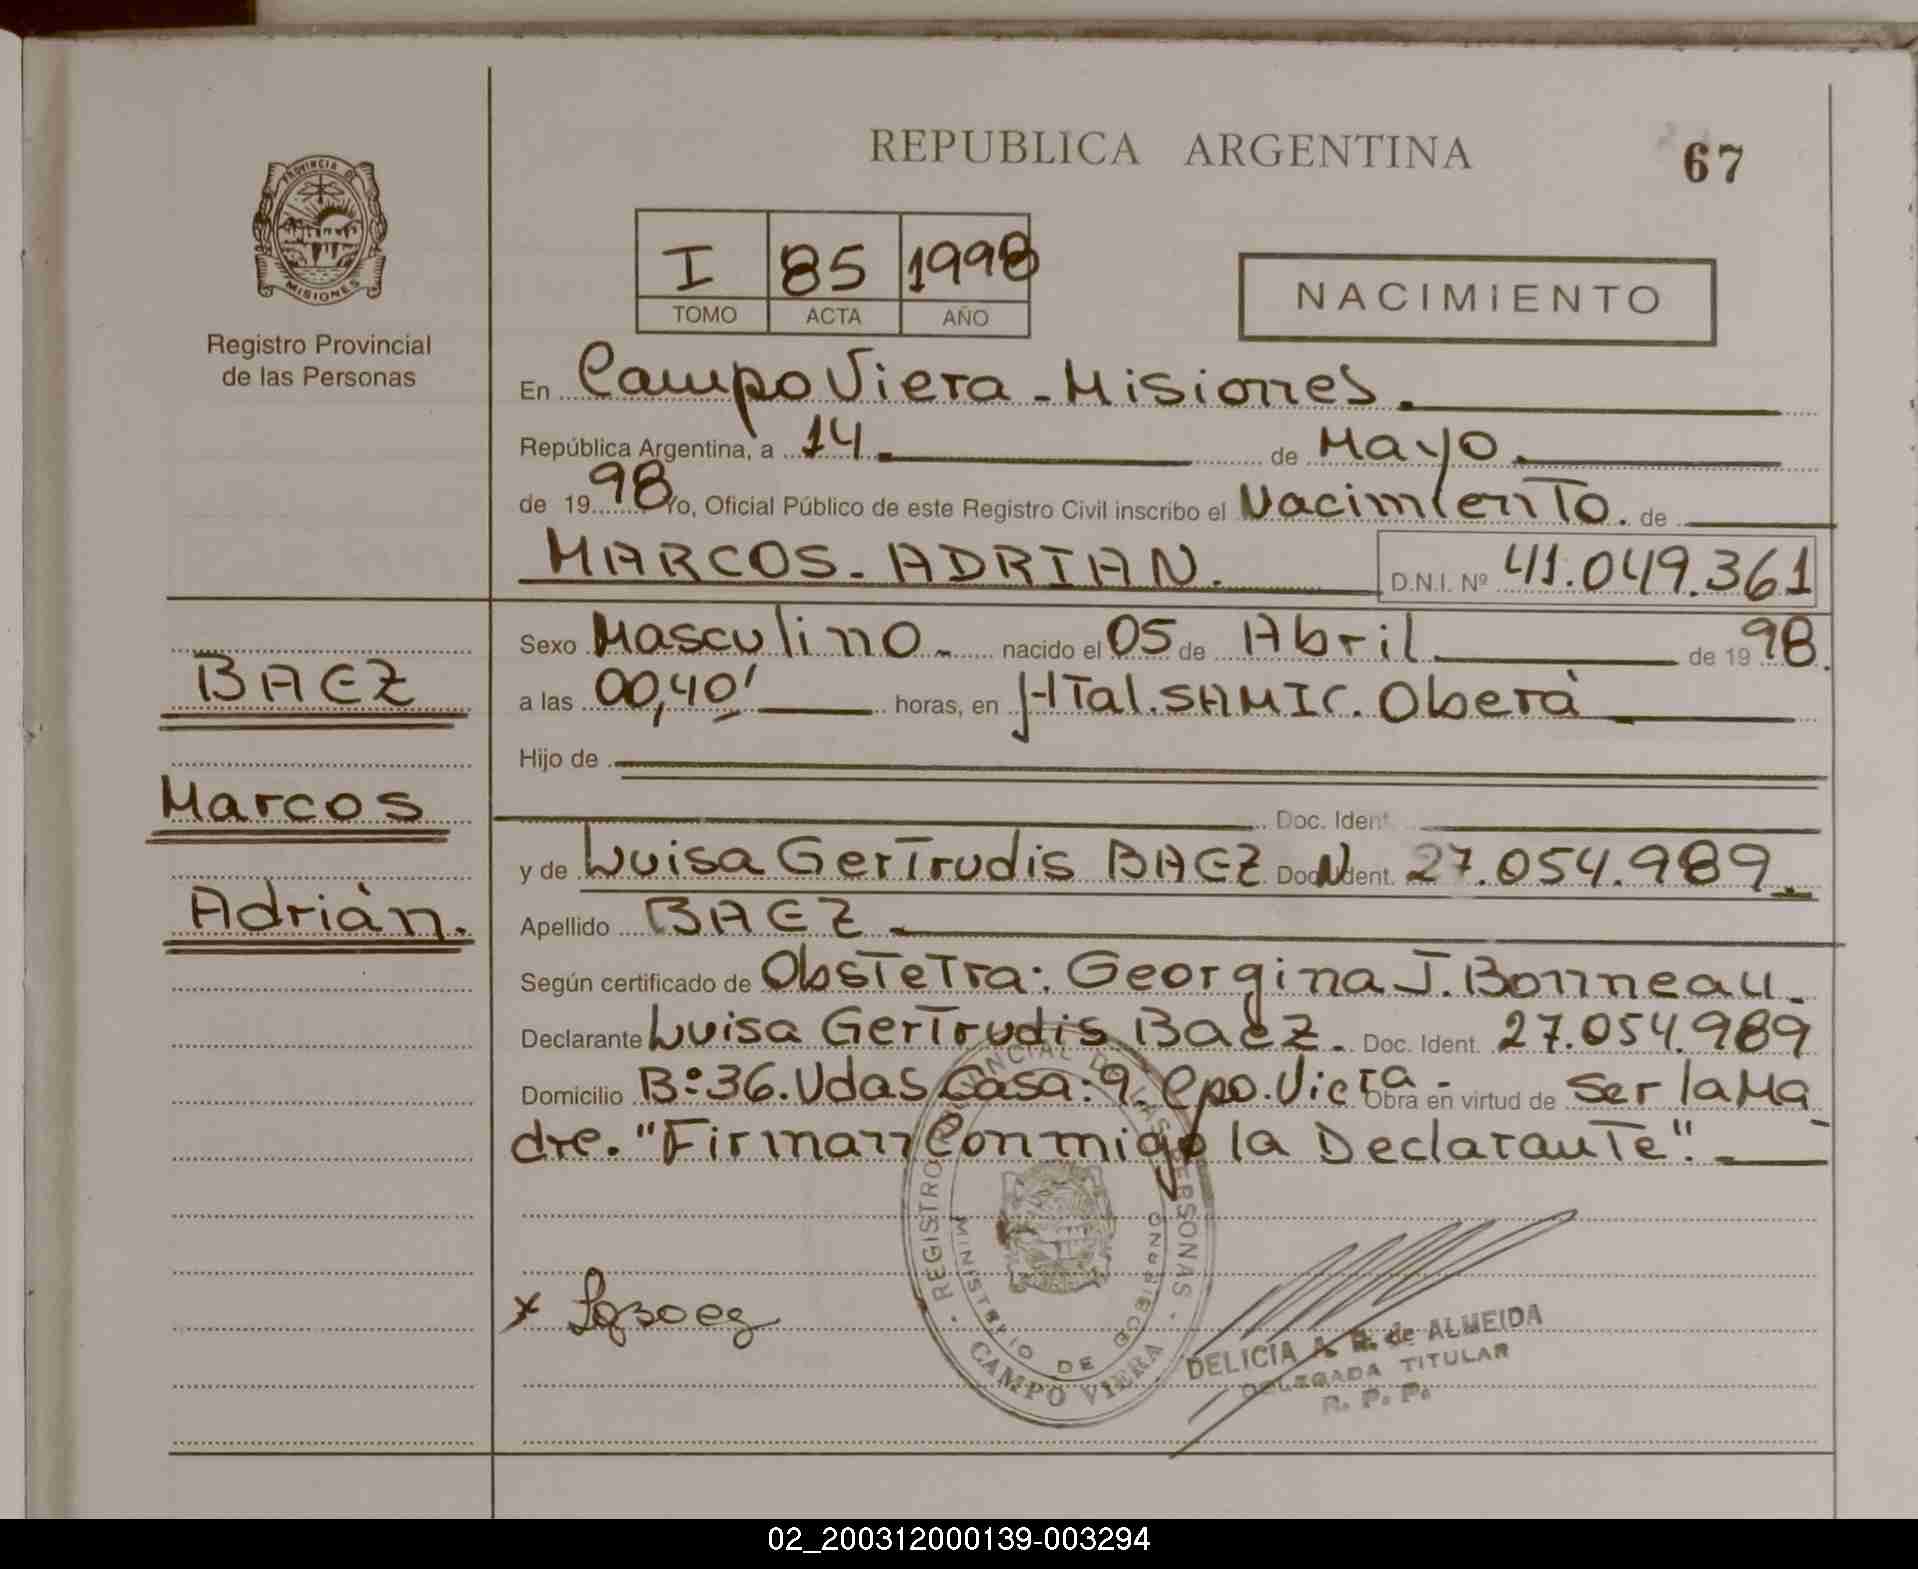 REPUBLICA ARGENTINA
67
PROVINCIA DE
MISIONES
Registro Provincial
de las Personas
I 85 1998
TOMO ACTA AÑO
NACIMIENTO
En Campo Viera - Misiones.
República Argentina, a 14 de Mayo.
de 19 98 Yo, Oficial Público de este Registro Civil inscribo el Nacimiento. de
MARCOS - ADRIAN. D.N.I. Nº 41.049.361
BAEZ
Marcos
Adrián.
Sexo Masculino nacido el 05 de Abril de 19 98.
a las 00,40' horas, en HTal. SAMIC. Oberá
Hijo de
Doc. Ident.
y de Luisa Gertrudis BAEZ Doc. Ident. N 27.054.989
Apellido BAEZ
Según certificado de Obstetra: Georgina J. Bonneau.
Declarante Luisa Gertrudis Baez. Doc. Ident. 27.054.989
Domicilio Bº 36. Vdas Casa: 9. Cpo. Viera - Obra en virtud de ser la Ma
dre. "Firman Conmigo la Declarante".
REGISTRO PROVINCIAL DE LAS PERSONAS
MINISTERIO DE GOBIERNO
CAMPO VIERA
x
DELICIA A. R. de ALMEIDA
DELEGADA TITULAR
R. P. P.
02_200312000139-003294